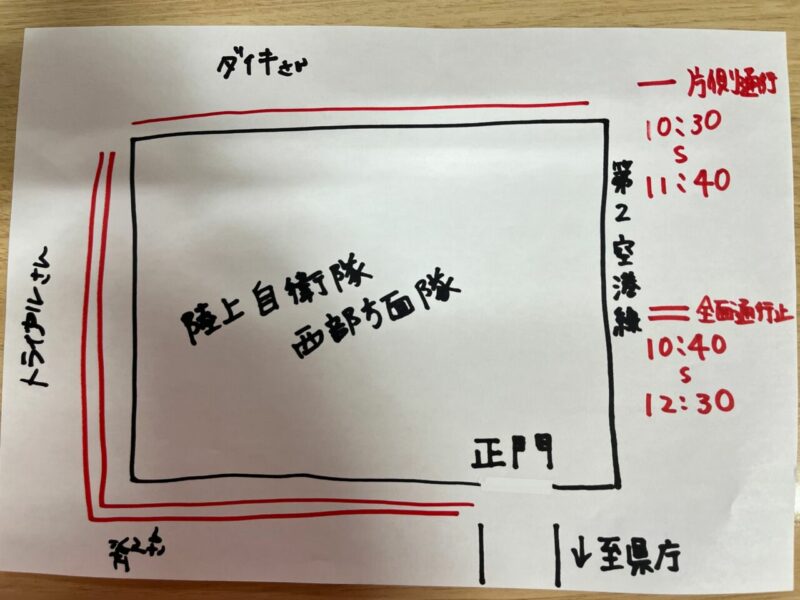 ダイキさん
片側通行
10:30
S
11:40
第2空港線
トライアルさん
陸上自衛隊
西部方面隊
全面通行止
10:40
S
12:30
正門
↓至県庁